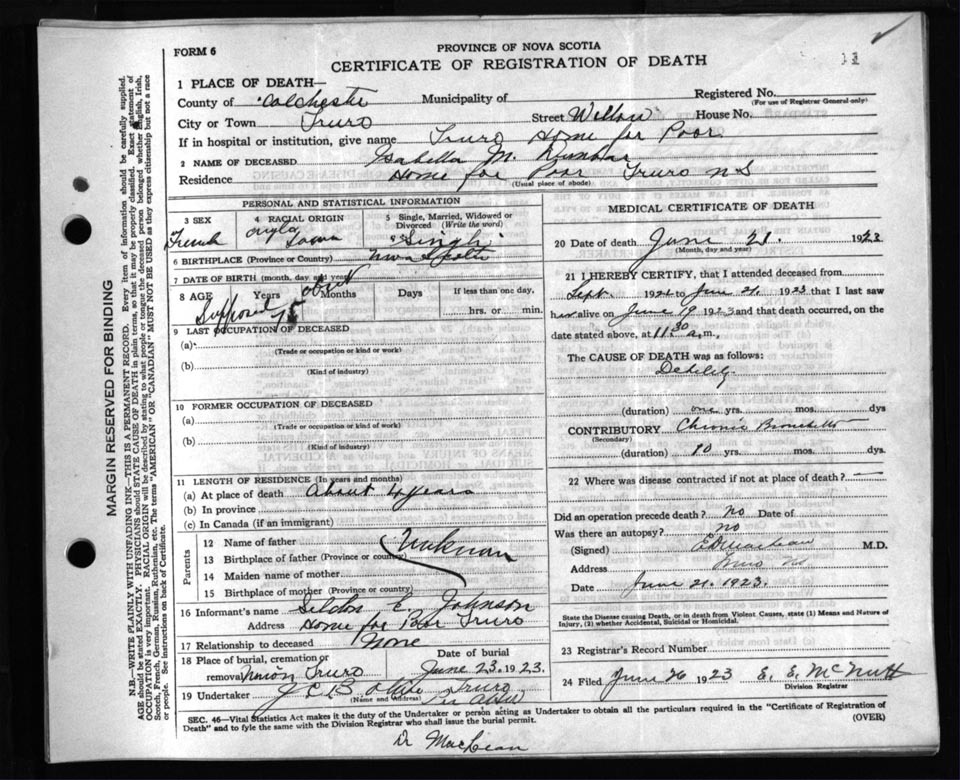 PROVINCE OF NOVA SCOTIA
FORM 6
CERTIFICATE OF REGISTRATION OF DEATH
1 PLACE OF DEATH—
County of Colchester Municipality of Registered No.
(For use of Registrar General-only)
City or Town Truro Street Willow House No.
If in hospital or institution, give name Truro Home for Poor
2 NAME OF DECEASED Isabella M. Dunbar
Residence Home for Poor Truro N S
(Usual place of abode)
PERSONAL AND STATISTICAL INFORMATION
3 SEX 4 RACIAL ORIGIN 5 Single, Married, Widowed or Divorced (Write the word)
Single
6 BIRTHPLACE (Province or Country) Nova Scotia
7 DATE OF BIRTH (month, day and year)
8 AGE Years Months Days If less than one day,
Supposed about 75 hrs. or min.
9 LAST OCCUPATION OF DECEASED
(a)
(Trade or occupation or kind or work)
(b)
(Kind of industry)
10 FORMER OCCUPATION OF DECEASED
(a)
(Trade or occupation or kind of work)
(b)
(Kind of industry)
11 LENGTH OF RESIDENCE (In years and months)
(a) At place of death About 4 years
(b) In province
(c) In Canada (if an immigrant)
Parents
12 Name of father
13 Birthplace of father (Province or country)
14 Maiden name of mother
15 Birthplace of mother (Province or country)
16 Informant's name E. Johnson
Address Home for Poor Truro
17 Relationship to deceased None
18 Place of burial, cremation or removal Truro Date of burial June 23. 1923.
19 Undertaker Truro
(Name and Address)
MEDICAL CERTIFICATE OF DEATH
20 Date of death June 21. 1923
(Month, day and year)
21 I HEREBY CERTIFY, that I attended deceased from
Sept. to June 21, 1923 that I last saw
alive on June 19 1923 and that death occurred, on the
date stated above, at 11 30 a.m.,
The CAUSE OF DEATH was as follows:
Debility
(duration) one yrs. mos. dys
CONTRIBUTORY Chronic Bronchitis
(Secondary)
(duration) 10 yrs. mos. dys
22 Where was disease contracted if not at place of death?
Did an operation precede death? no Date of
Was there an autopsy? no
(Signed) M.D.
Address Truro NS
Date June 21. 1923.
State the Disease Causing Death, or in death from Violent Causes, state (1) Means and Nature of
Injury, (2) whether Accidental, Suicidal or Homicidal.
23 Registrar's Record Number
24 Filed June 26 1923 E. E. McNutt
Division Registrar
SEC. 46—Vital Statistics Act makes it the duty of the Undertaker or person acting as Undertaker to obtain all the particulars required in the "Certificate of Registration of
Death" and to fyle the same with the Division Registrar who shall issue the burial permit. (OVER)
Dr MacLean
MARGIN RESERVED FOR BINDING
N.B.—WRITE PLAINLY WITH UNFADING INK—THIS IS A PERMANENT RECORD. Every item of information should be carefully supplied.
AGE should be stated EXACTLY. PHYSICIANS should STATE CAUSE OF DEATH in plain terms, so that it may be properly classified. Exact statement of
OCCUPATION is very important. RACIAL ORIGIN will be described by stating to what people or tongue the deceased person belonged whether English, Irish,
Scotch, French, German, Russian, Ruthenian, etc. The terms "AMERICAN" OR "CANADIAN" MUST NOT BE USED as they express citizenship but not a race
or people. See instructions on back of Certificate.